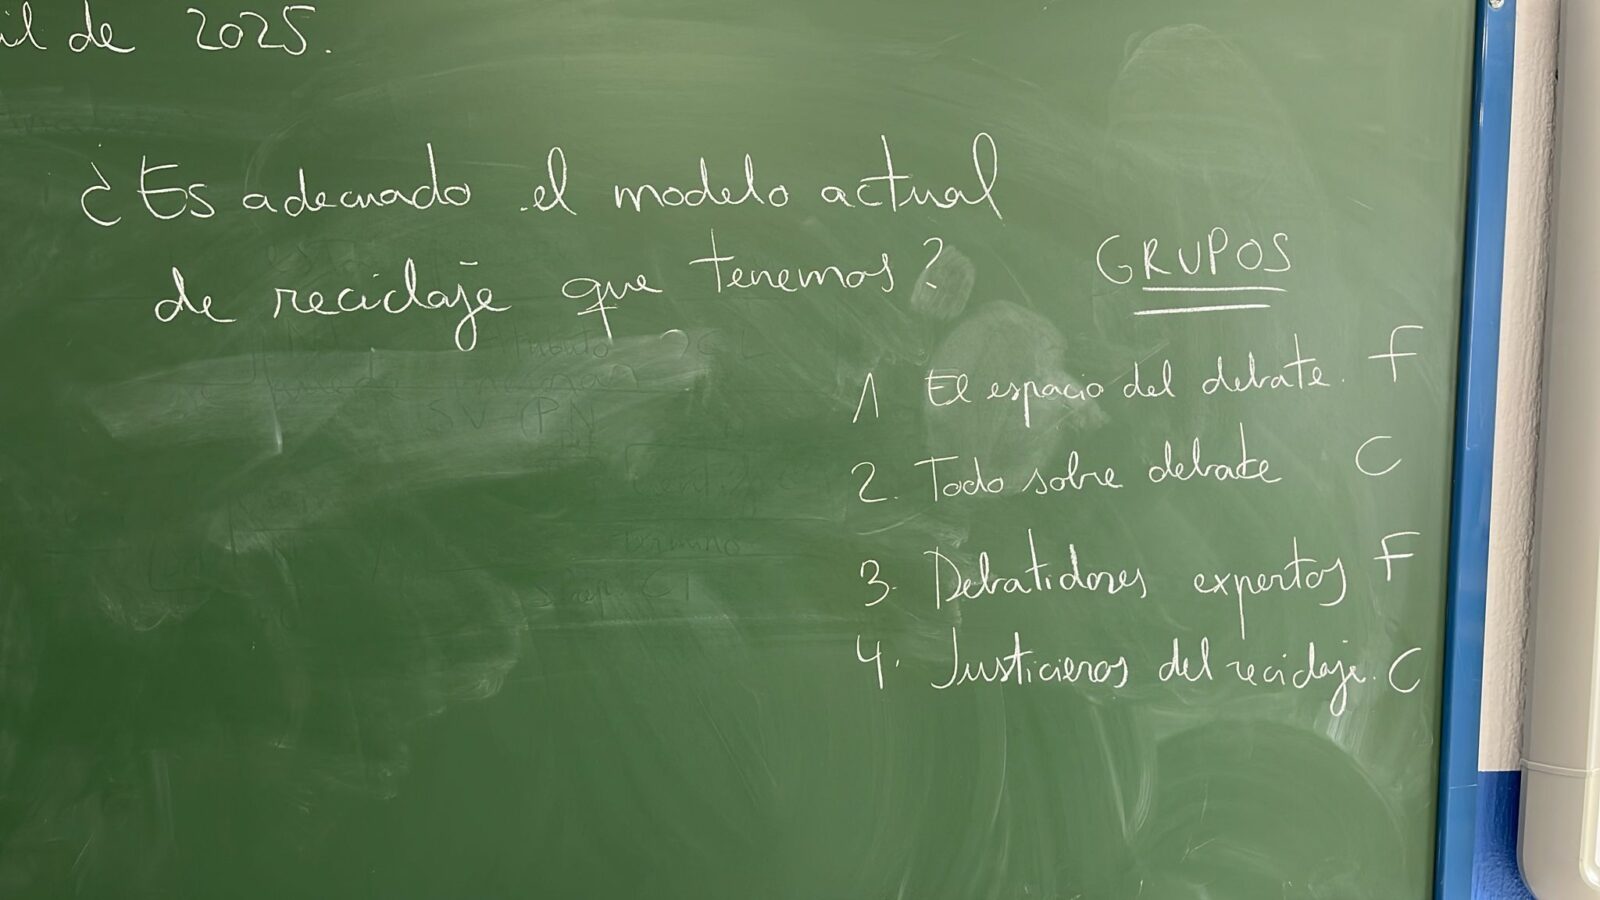 il de 2025.
¿Es adecuado el modelo actual
de reciclaje que tenemos?
GRUPOS
1 El espacio del debate. F
2. Todo sobre debate C
3. Debatidores expertos F
4. Justicieros del reciclaje. C